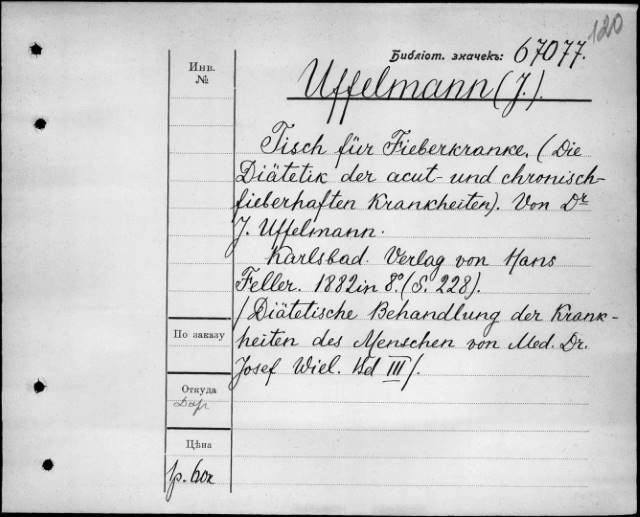 120
Библіот. значекъ: 67077.
Инв.
№
Uffelmann (J.).
Tisch für Fieberkranke. (Die
Diätetik der acut- und chronisch-
fieberhaften Krankheiten). Von Dr
J. Uffelmann.
Karlsbad. Verlag von Hans
Feller. 1882 in 8°. (S. 228).
/Diätetische Behandlung der Krank-
heiten des Menschen von Med. Dr.
Josef Wiel. Bd III/.
По заказу
Откуда
Дар
Цѣна
1р. 60к